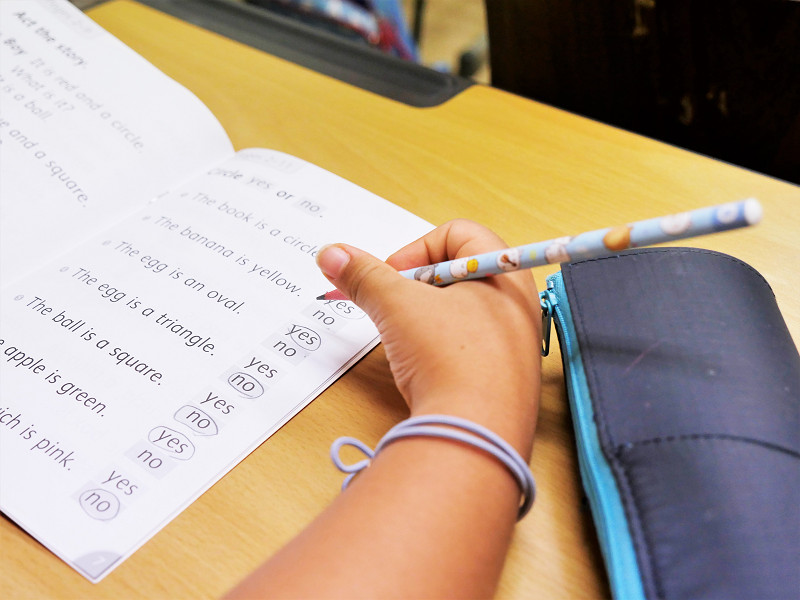 Act the story.
Boy
It is red and a circle.
What is it?
is a ball.
and a square.
circle yes or no.
The book is a circle
The banana is yellow.
yes
no
The egg is an oval.
yes
no
The egg is a triangle.
yes
no
The ball is a square.
yes
no
apple is green.
yes
no
is pink.
yes
no
7